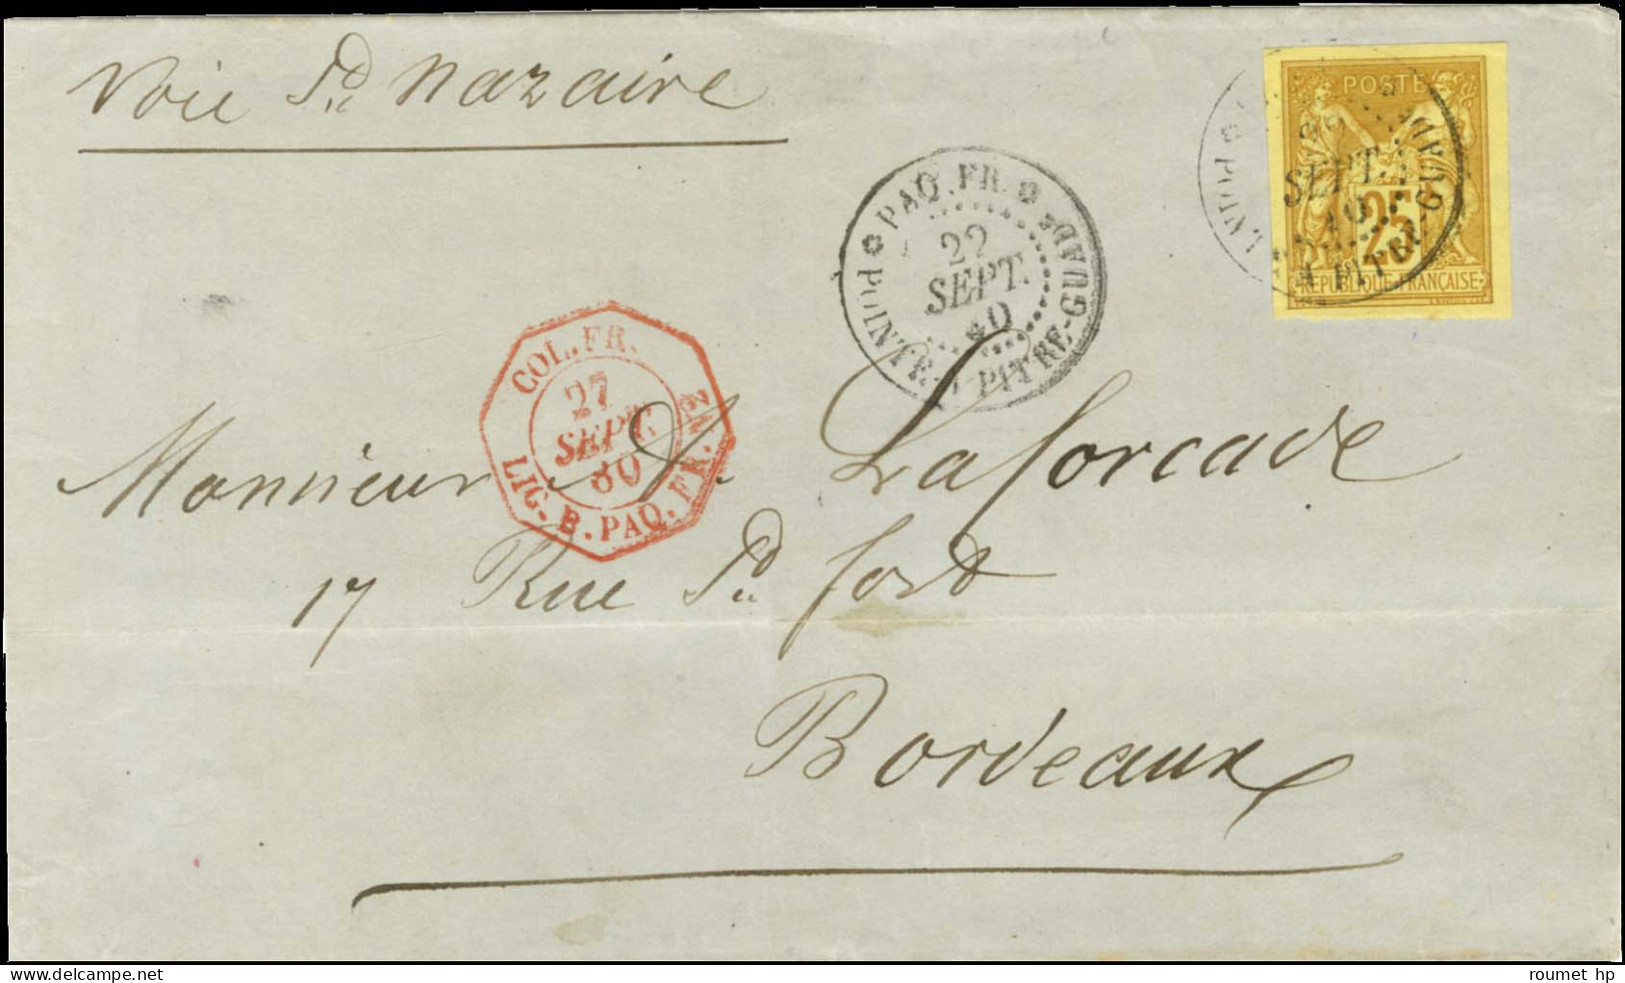 Voie St Nazaire
POSTE
25
REPUBLIQUE FRANÇAISE
SEPT.
PAQ. FR.
22
SEPT.
40
POINTE-A-PITRE-GUADE
COL. FR.
27
SEPT.
80
LIG. B. PAQ. FR. N°2
Monsieur A. Laforcade
17 Rue St fort
Bordeaux
www.delcampe.net
roumet hp